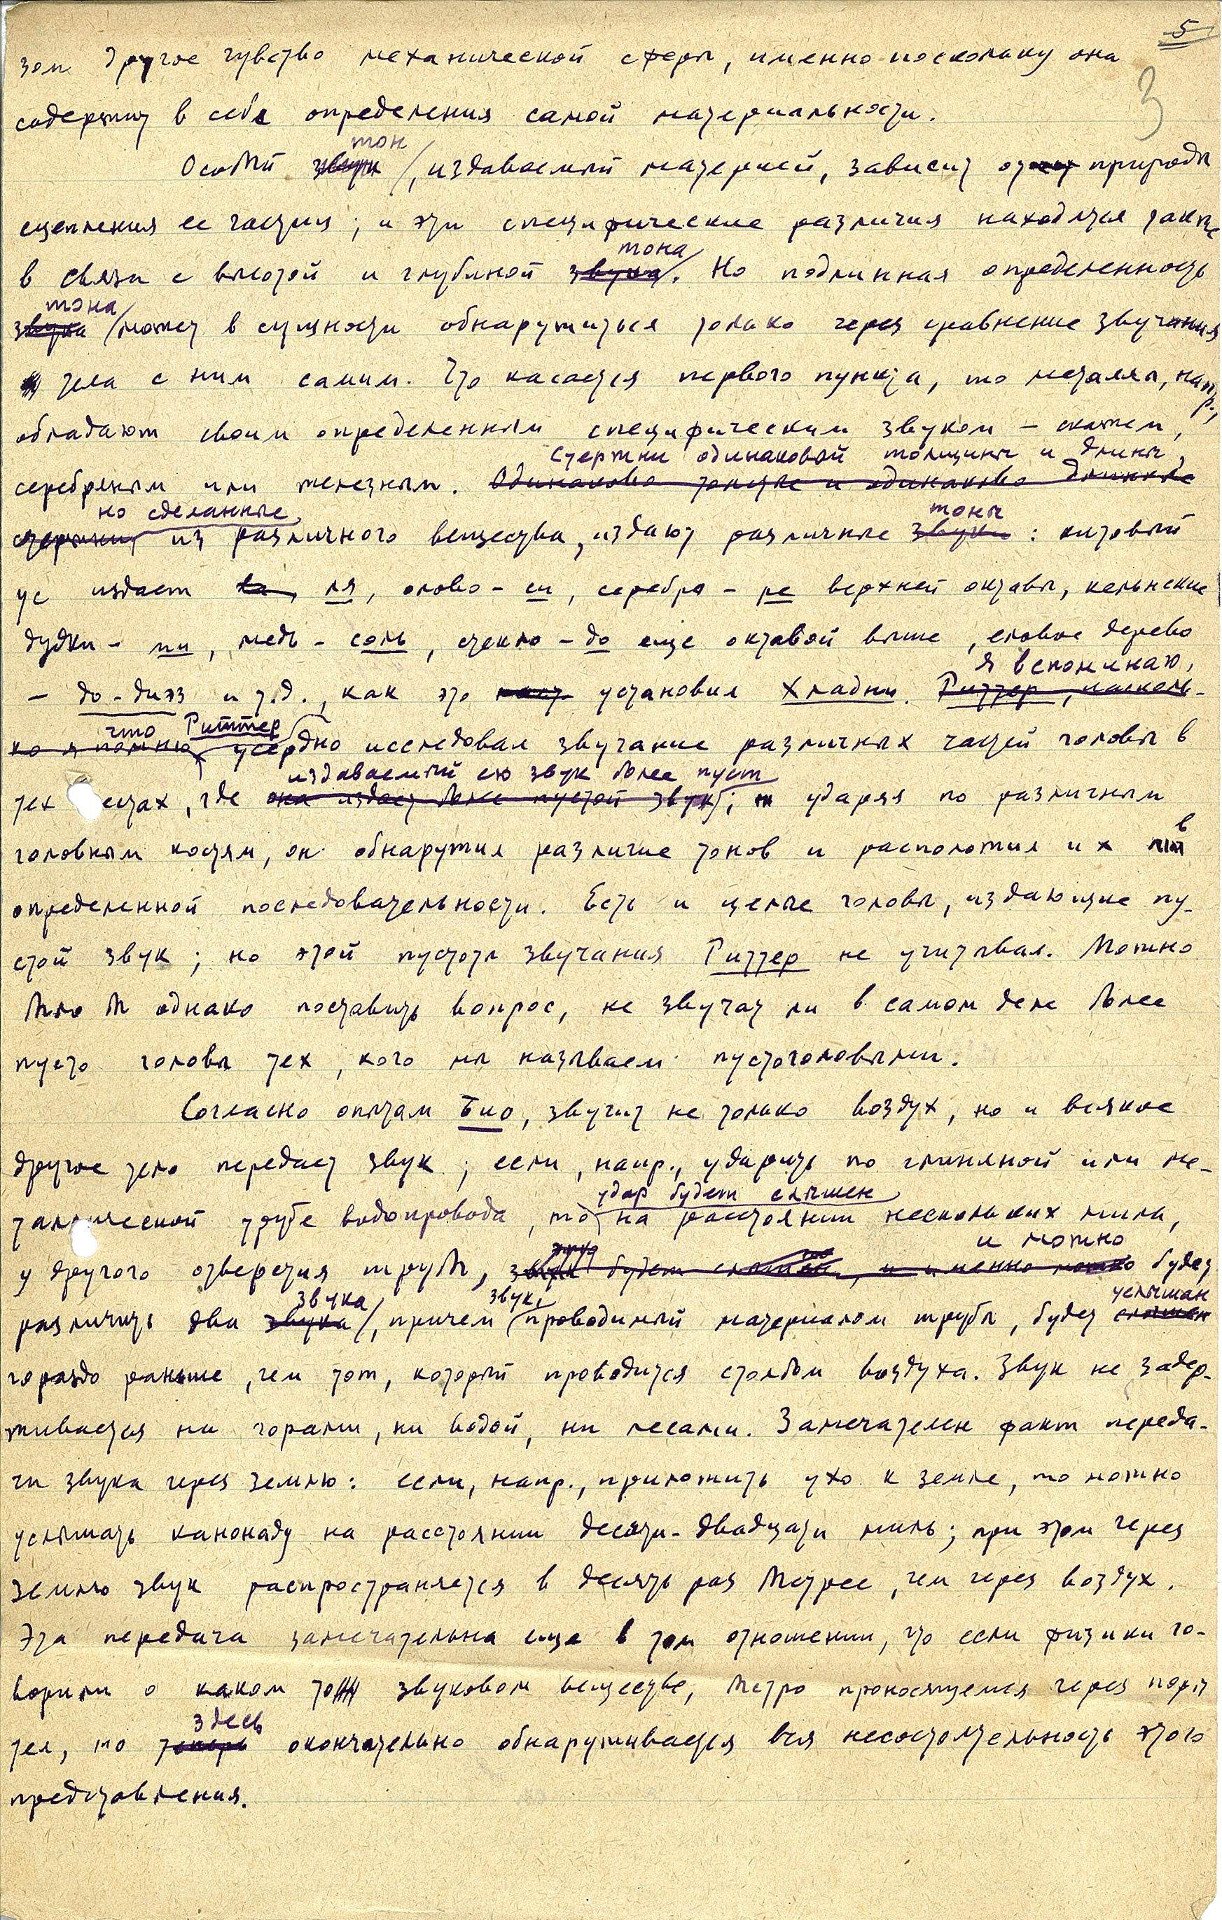 5
3
зом другое чувство механической сферы, именно поскольку она
содержит в себе определения самой материальности.
тон
Особый звук, издаваемый материей, зависит от природы
сцепления ее частиц; и эти специфические различия находятся также
тона
в связи с высотой и глубиной звука. Но подлинная определенность
тона
звука может в сущности обнаружиться только через сравнение звучания
тела с ним самим. Что касается первого пункта, то металлы, напр.,
обладают своим определенным специфическим звуком – скажем,
стержни одинаковой толщины и длины,
серебряным или железным. Одинаково толстые и одинаково длинные
но сделанные тоны
стержни из различного вещества, издают различные звуки: китовый
ус издает ля, олово – си, серебро – ре верхней октавы, кельнские
дудки – ми, медь – соль, стекло – до еще октавой выше, еловое дерево
Я вспоминаю,
– до-диэз и т.д., как это установил Хладни. Риттер, насколь-
что Риттер
ко я помню, усердно исследовал звучание различных частей головы в
издаваемый ею звук более пуст
тех местах, где она издает более пустой звук; ударяя по различным
в
головным костям, он обнаружил различие тонов и расположил их
определенной последовательности. Есть и целые головы, издающие пу-
стой звук; но этой пустоты звучания Риттер не учитывал. Можно
было б однако поставить вопрос, не звучат ли в самом деле более
пусто головы тех, кого мы называем пустоголовыми.
Согласно опытам Био, звучит не только воздух, но и всякое
другое тело передает звук; если, напр., ударить по глиняной или ме-
удар будет слышен
таллической трубе водопровода, то на расстоянии нескольких миль,
и можно
у другого отверстия трубы, звук будет слышен, и именно можно будет
звука звук, услышан
различить два звука, причем проводимый материалом трубы, будет слышен
гораздо раньше, чем тот, который проводится столбом воздуха. Звук не задер-
живается ни горами, ни водой, ни лесами. Замечателен факт переда-
чи звука через землю: если, напр., приложить ухо к земле, то можно
услышать канонаду на расстоянии десяти-двадцати миль; при этом через
землю звук распространяется в десять раз быстрее, чем через воздух.
Эта передача замечательна еще в том отношении, что если физики го-
ворили о каком то звуковом веществе, быстро проносящемся через поры
здесь
тел, то теперь окончательно обнаруживается вся несостоятельность этого
представления.